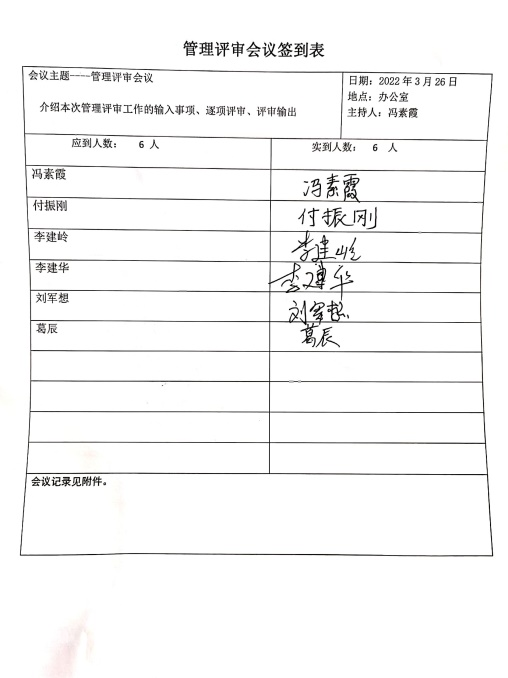 管理评审会议签到表
会议主题----管理评审会议
介绍本次管理评审工作的输入事项、逐项评审、评审输出
日期：2022 年 3 月 26 日
地点：办公室
主持人：冯素霞
应到人数： 6 人 实到人数： 6 人
冯素霞 冯素霞
付振刚 付振刚
李建岭 李建岭
李建华 李建华
刘军想 刘军想
葛辰 葛辰
会议记录见附件。